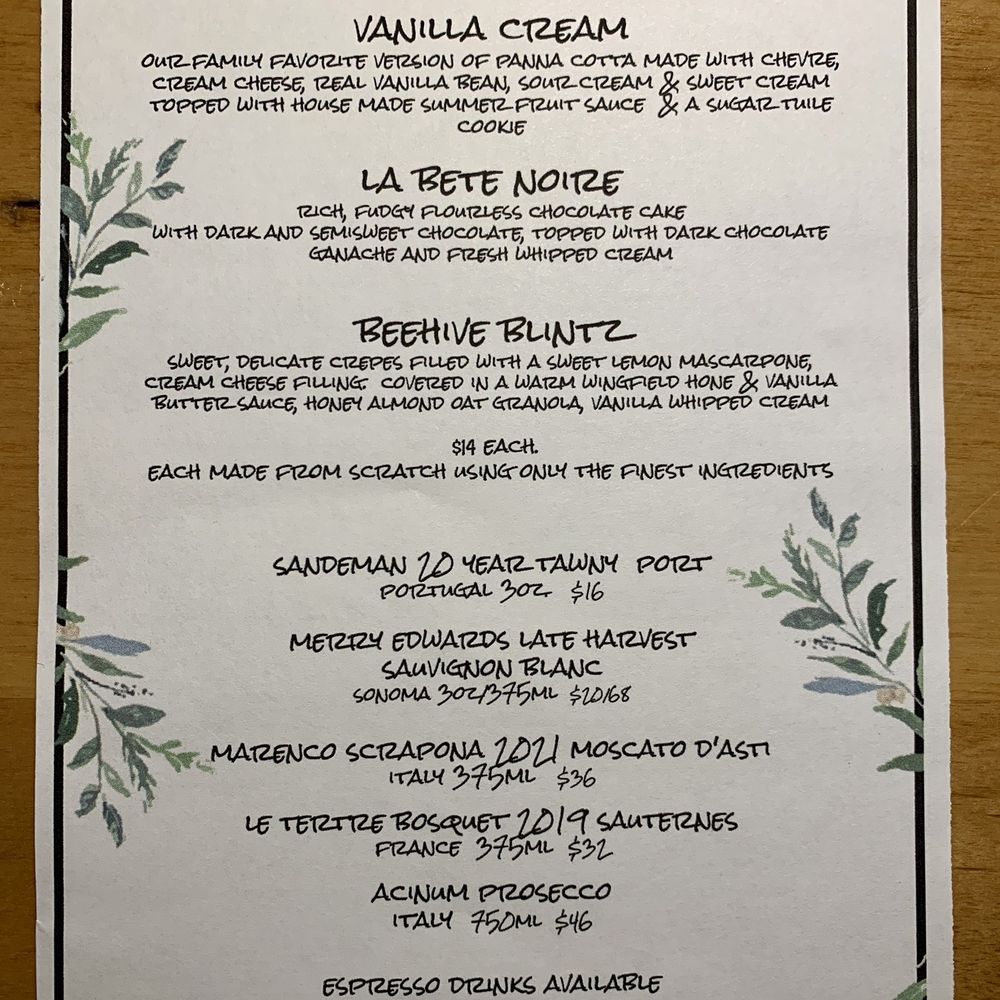 VANILLA CREAM
OUR FAMILY FAVORITE VERSION OF PANNA COTTA MADE WITH CHEVRE,
CREAM CHEESE, REAL VANILLA BEAN, SOUR CREAM & SWEET CREAM
TOPPED WITH HOUSE MADE SUMMER FRUIT SAUCE & A SUGAR TUILE
COOKIE
LA BETE NOIRE
RICH, FUDGY FLOURLESS CHOCOLATE CAKE
WITH DARK AND SEMISWEET CHOCOLATE, TOPPED WITH DARK CHOCOLATE
GANACHE AND FRESH WHIPPED CREAM
BEEHIVE BLINTZ
SWEET, DELICATE CREPES FILLED WITH A SWEET LEMON MASCARPONE,
CREAM CHEESE FILLING. COVERED IN A WARM WINGFIELD HONE & VANILLA
BUTTER SAUCE, HONEY ALMOND OAT GRANOLA, VANILLA WHIPPED CREAM
$14 EACH.
EACH MADE FROM SCRATCH USING ONLY THE FINEST INGREDIENTS
SANDEMAN 20 YEAR TAWNY PORT
PORTUGAL 3OZ $16
MERRY EDWARDS LATE HARVEST
SAUVIGNON BLANC
SONOMA 3OZ/375ML $20/68
MARENCO SCRAPONA 2021 MOSCATO D'ASTI
ITALY 375ML $36
LE TERTRE BOSQUET 2019 SAUTERNES
FRANCE 375ML $32
ACINUM PROSECCO
ITALY 750ML $46
ESPRESSO DRINKS AVAILABLE